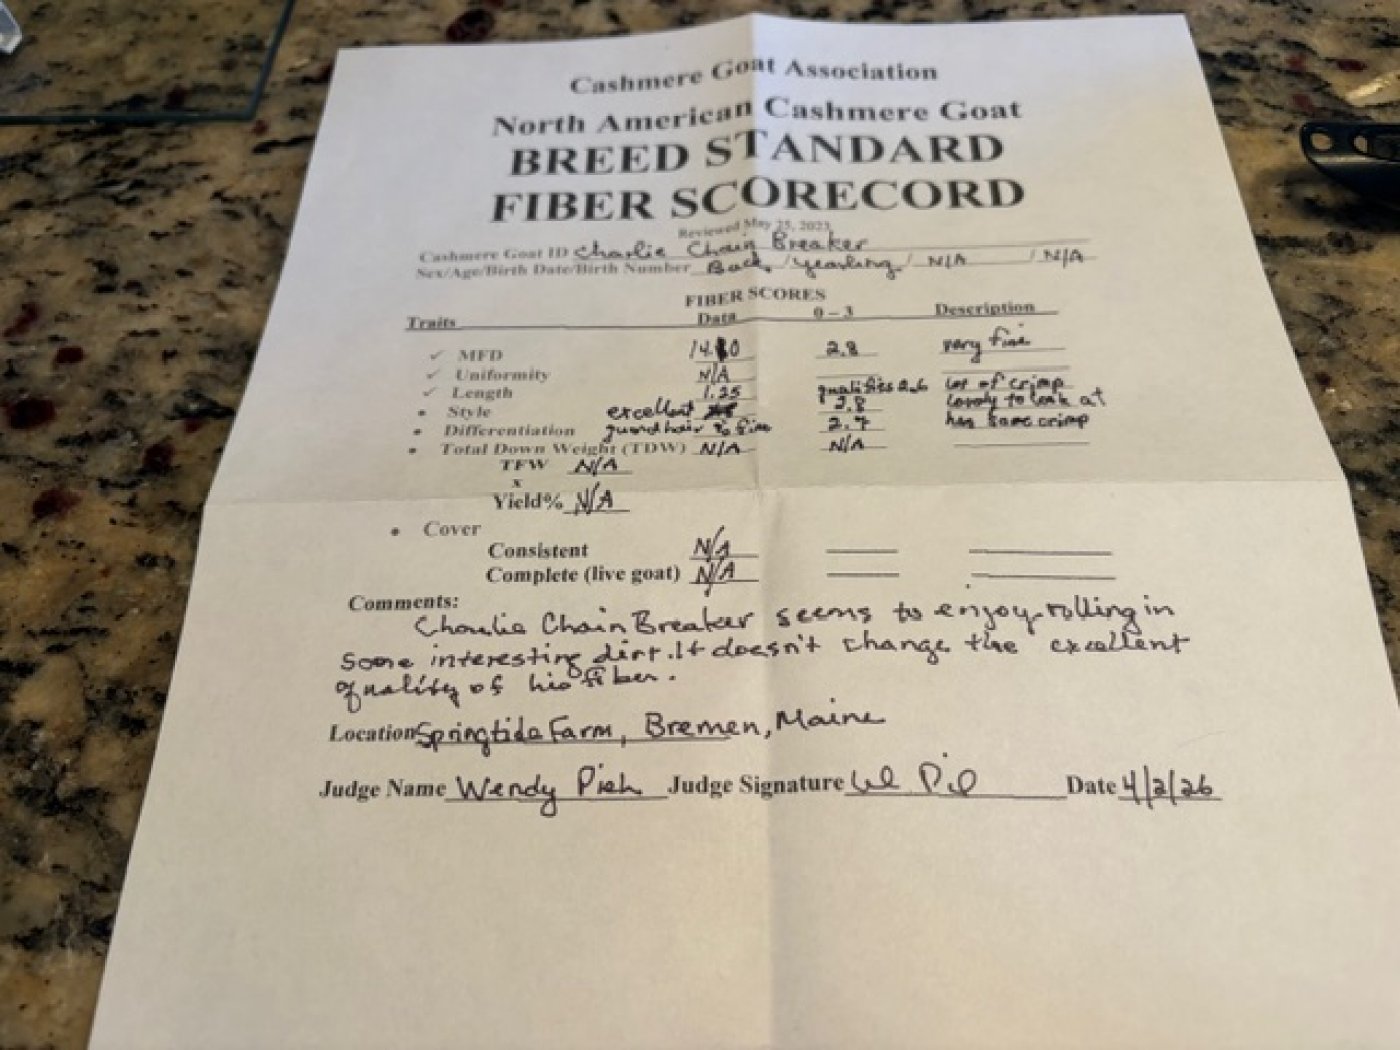 Cashmere Goat Association
North American Cashmere Goat
BREED STANDARD
FIBER SCORECORD
Reviewed May 25, 2023
Cashmere Goat ID Charlie Chain Breaker
Sex/Age/Birth Date/Birth Number Buck / yearling / N/A / N/A
FIBER SCORES
Traits Data 0 – 3 Description
✓ MFD 2.8 very fine
✓ Uniformity N/A
✓ Length 1.25 qualifies 2.6 lot of crimp
• Style excellent 2.8 lovely to look at
• Differentiation guard hair 2.7 has some crimp
• Total Down Weight (TDW) N/A N/A
TFW N/A
x
Yield% N/A
• Cover
Consistent N/A
Complete (live goat) N/A
Comments:
Charlie Chain Breaker seems to enjoy rolling in
some interesting dirt. It doesn't change the excellent
quality of his fiber.
Location Springtide Farm, Bremen, Maine
Judge Name Wendy Pieh Judge Signature Date 4/2/26